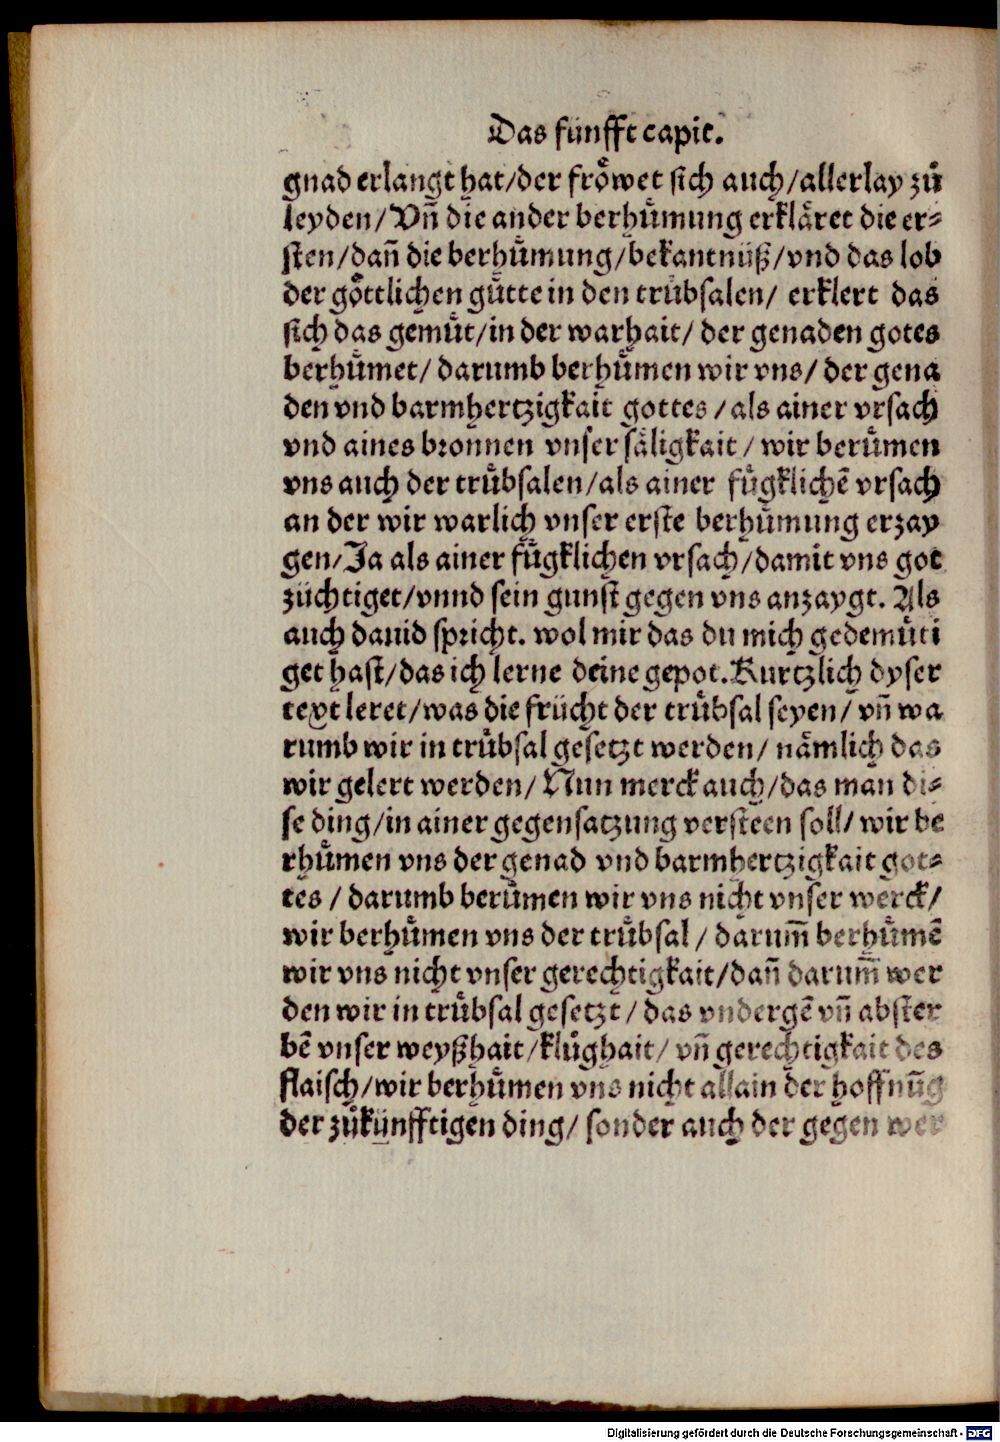 Das fünfft capit.
gnad erlangt hat/der fröwet sich auch/allerlay zů
leyden/Vñ die ander berhůmung erkläret die er-
sten/dañ die berhůmung/bekantnüß/vnd das lob
der göttlichen gůtte in den trůbsalen/ erklert das
sich das gemůt/in der warhait/ der genaden gotes
berhůmet/ darumb berhůmen wir vns/ der gena
den vnd barmhertzigkait gottes/als ainer vrsach
vnd aines bronnen vnser säligkait/ wir berůmen
vns auch der trůbsalen/als ainer fůgklichē vrsach
an der wir warlich vnser erste berhůmung erzay
gen/Ja als ainer fůgklichen vrsach/damit vns got
züchtiget/vnnd sein gunst gegen vns anzaygt. Als
auch dauid spricht. wol mir das du mich gedemůti
get hast/das ich lerne deine gepot.Kurtzlich dyser
text leret/was die frücht der trůbsal seyen/ vñ wa
rumb wir in trůbsal gesetzt werden/ nämlich das
wir gelert werden/ Nun merck auch/das man di-
se ding/in ainer gegensatzung versteen soll/ wir be
rhůmen vns der genad vnd barmhertzigkait got-
tes / darumb berůmen wir vns nicht vnser werck/
wir berhůmen vns der trůbsal / darum̄ berhůmē
wir vns nicht vnser gerechtigkait/dañ darum̄ wer
den wir in trůbsal gesetzt/ das vndergē vñ abster
bē vnser weyßhait/klůghait/ vñ gerechtigkait des
flaisch/wir berhůmen vns nicht allain der hoffnūg
der zůkünfftigen ding/ sonder auch der gegen wer
Digitalisierung gefördert durch die Deutsche Forschungsgemeinschaft - DFG